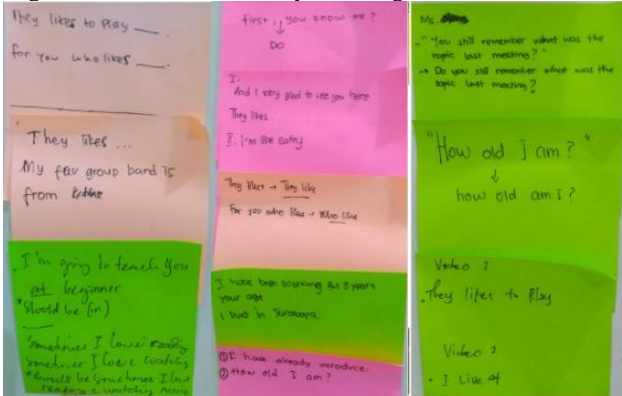 They likes to play ___.
for you who likes ___.
They likes ...
My fav group band is
from
I'm going to teach you
at beginner
*should be (in)
Sometimes I love reading
sometimes I love watching
first, you know me?
DO
I.
And I very glad to see you here
They likes.
II. I'm like eating
They likes → They like
For you who likes → who like
I have been working for 8 years
your age
I lived in Surabaya.
① I have already introduce.
② How old I am?
Ms.
- "You still remember what was the
topic last meeting?"
→ Do you still remember what was the
topic last meeting?
"How old I am?"
↓
how old am I?
Video 1
. They likes to play
Video 2
. I live at